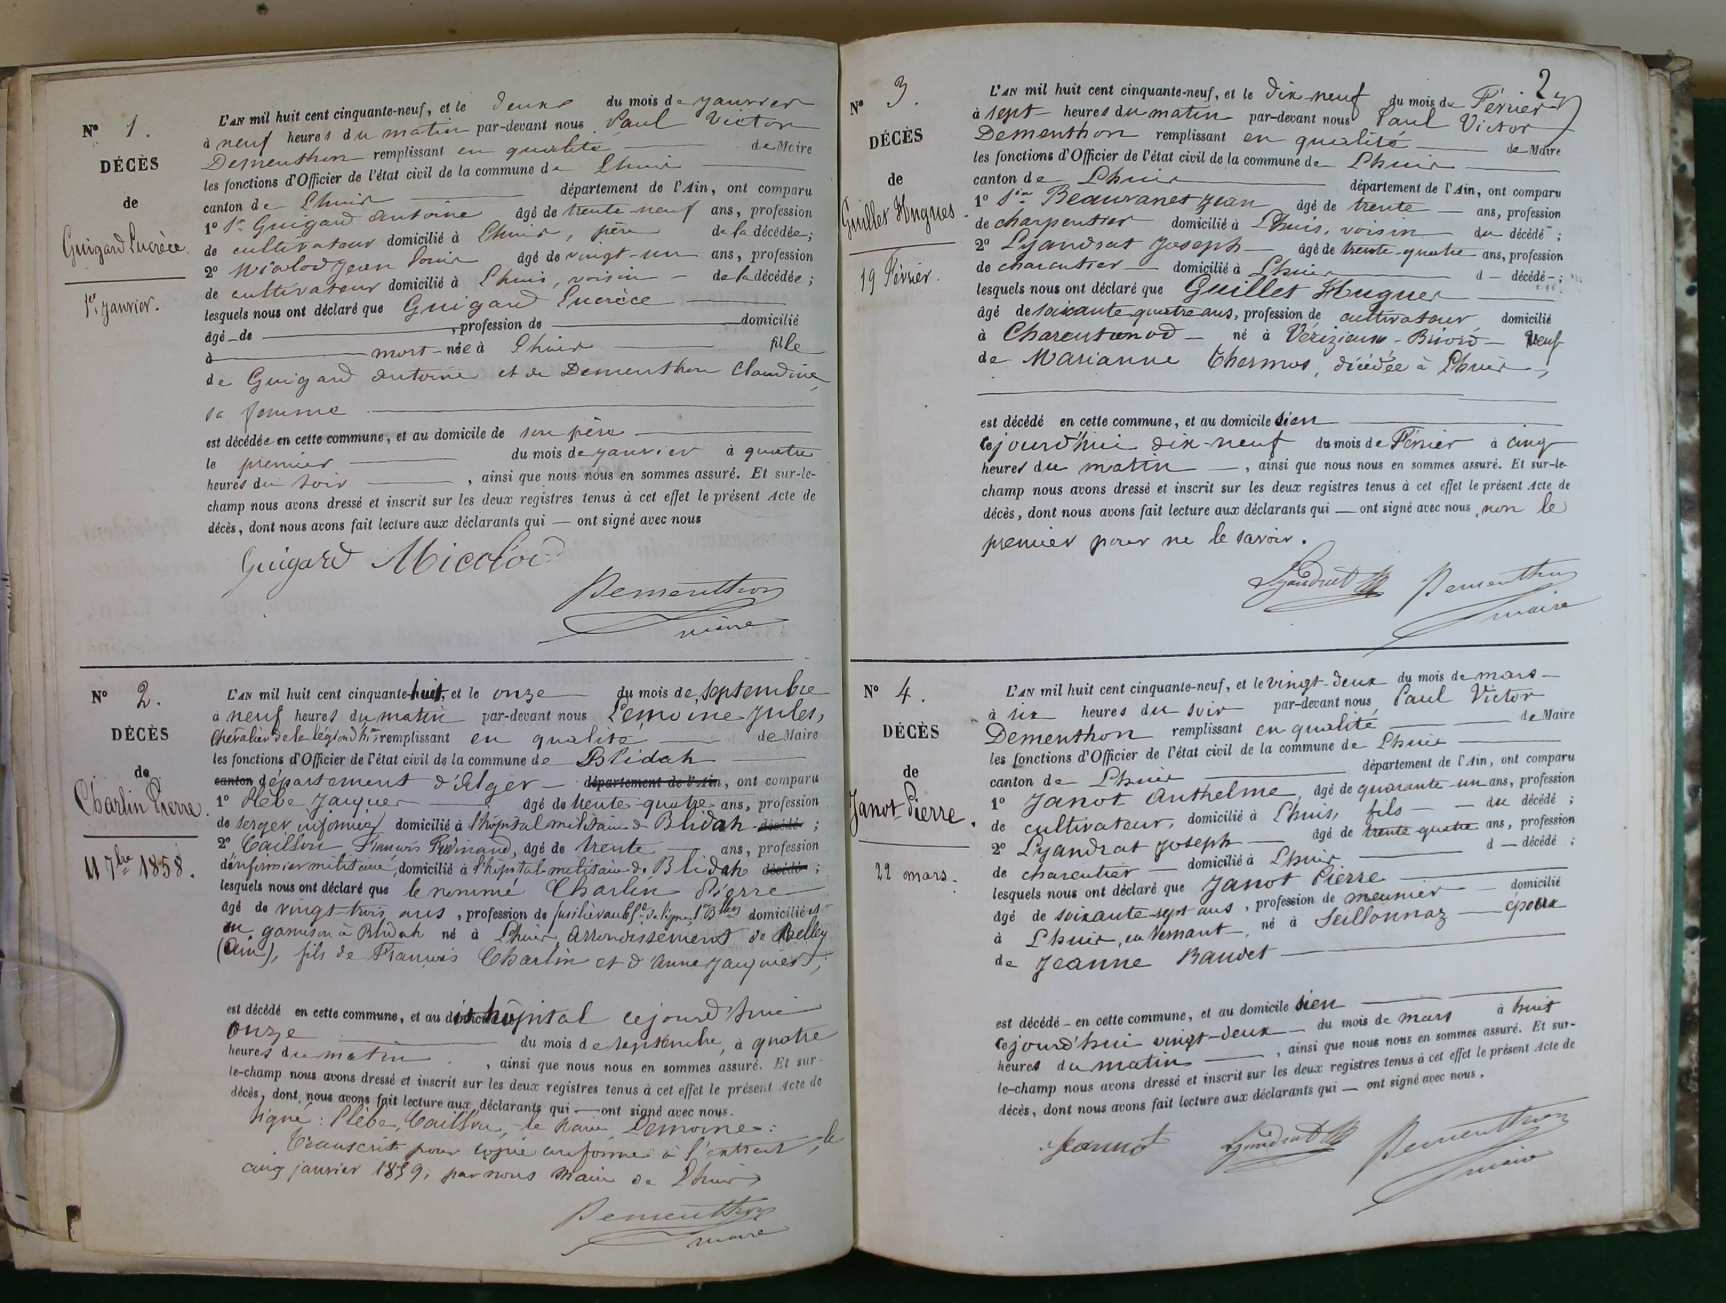 N° 1.
DÉCÈS
de
Guigard Lucrèce
1er janvier.
L'AN mil huit cent cinquante-neuf, et le deux du mois de janvier
à neuf heures du matin par-devant nous Paul Victor
Dementhon remplissant en qualité de Maire
les fonctions d'Officier de l'état civil de la commune de Lhuis
canton de Lhuis département de l'Ain, ont comparu
1° Sr Guigard Antoine âgé de trente-neuf ans, profession
de cultivateur domicilié à Lhuis, père de la décédée;
2° Micolod Jean Louis âgé de vingt-un ans, profession
de cultivateur domicilié à Lhuis, voisin de la décédée;
lesquels nous ont déclaré que Guigard Lucrèce
âgé de , profession de domicilié
à mort-née à Lhuis fille
de Guigard Antoine et de Dementhon Claudine,
sa femme
est décédée en cette commune, et au domicile de son père
le premier du mois de janvier à quatre
heures du soir , ainsi que nous nous en sommes assuré. Et sur-le-
champ nous avons dressé et inscrit sur les deux registres tenus à cet effet le présent Acte de
décès, dont nous avons fait lecture aux déclarants qui — ont signé avec nous
Guigard Micolod
Dementhon
maire
N° 2.
DÉCÈS
de
Charlin Pierre.
11 7bre 1858.
L'AN mil huit cent cinquante-huit, et le onze du mois de septembre
à neuf heures du matin par-devant nous Lemoine Jules,
Chevalier de la Légion d'hr remplissant en qualité de Maire
les fonctions d'Officier de l'état civil de la commune de Blidah
canton département d'Alger département de l'Ain, ont comparu
1° Plèbe Jacques âgé de trente-quatre ans, profession
de sergent infirmier domicilié à l'hôpital militaire de Blidah décédé ;
2° Caillou François Fernand, âgé de trente ans, profession
d'infirmier militaire, domicilié à l'hôpital militaire de Blidah décédé ;
lesquels nous ont déclaré que le nommé Charlin Pierre
âgé de vingt-trois ans, profession de fusilier au de ligne, 1er Bllon domicilié et
en garnison à Blidah né à Lhuis arrondissement de Belley
(Ain), fils de François Charlin et d'Anne Jacquet,
est décédé en cette commune, et au domicile hôpital cejourd'hui
onze du mois de septembre, à quatre
heures du matin , ainsi que nous nous en sommes assuré. Et sur-
le-champ nous avons dressé et inscrit sur les deux registres tenus à cet effet le présent Acte de
décès, dont nous avons fait lecture aux déclarants qui — ont signé avec nous.
signé : Plèbe, Caillou, le Lemoine.
Transcrit pour copie conforme à l'extrait, le
cinq janvier 1859, par nous Maire de Lhuis
Dementhon
maire
2
N° 3.
DÉCÈS
de
Guillet Hugues.
19 Février.
L'AN mil huit cent cinquante-neuf, et le dix neuf du mois de Février
à sept heures du matin par-devant nous Paul Victor
Dementhon remplissant en qualité de Maire
les fonctions d'Officier de l'état civil de la commune de Lhuis
canton de Lhuis département de l'Ain, ont comparu
1° Sr Beauvanet Jean âgé de trente ans, profession
de charpentier domicilié à Lhuis, voisin du décédé ;
2° Lyandrat Joseph âgé de trente-quatre ans, profession
de charcutier domicilié à Lhuis d — décédé ;
lesquels nous ont déclaré que Guillet Hugues
âgé de soixante quatre ans, profession de cultivateur domicilié
à Charentonod né à Vérizieux-Briord veuf
de Marianne Thermos, décédée à Lhuis,
est décédé en cette commune, et au domicile sien
cejourd'hui dix-neuf du mois de Février à cinq
heures du matin , ainsi que nous nous en sommes assuré. Et sur-le-
champ nous avons dressé et inscrit sur les deux registres tenus à cet effet le présent Acte de
décès, dont nous avons fait lecture aux déclarants qui — ont signé avec nous, non le
premier pour ne le savoir.
Lyandrat Dementhon
maire
N° 4.
DÉCÈS
de
Janot Pierre.
22 mars.
L'AN mil huit cent cinquante-neuf, et le vingt-deux du mois de mars
à six heures du soir par-devant nous, Paul Victor
Dementhon remplissant en qualité de Maire
les fonctions d'Officier de l'état civil de la commune de Lhuis
canton de Lhuis département de l'Ain, ont comparu
1° Janot Anthelme, âgé de quarante-un ans, profession
de cultivateur, domicilié à Lhuis, fils du décédé ;
2° Lyandrat Joseph âgé de trente quatre ans, profession
de charcutier domicilié à Lhuis d — décédé ;
lesquels nous ont déclaré que Janot Pierre
âgé de soixante-sept ans, profession de meunier domicilié
à Lhuis, en Vernant, né à Seillonnaz époux
de Jeanne Baudet
est décédé en cette commune, et au domicile sien
cejourd'hui vingt-deux du mois de mars à huit
heures du matin , ainsi que nous nous en sommes assuré. Et sur-
le-champ nous avons dressé et inscrit sur les deux registres tenus à cet effet le présent Acte de
décès, dont nous avons fait lecture aux déclarants qui — ont signé avec nous.
Jeannot Lyandrat Dementhon
maire